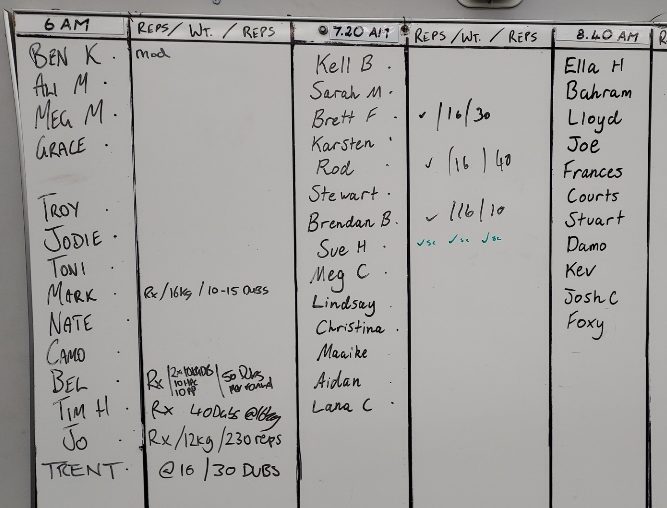 6 AM REPS/ WT. / REPS 7.20 AM REPS / WT. / REPS 8.40 AM R
BEN K . mod Kell B . Ella H
ALI M . Sarah M . Bahram
MEG M . Brett F . ✓ /16/30 Lloyd
GRACE . Karsten . Joe
Rod ✓ /16 / 40 Frances
TROY . Stewart . Courts
JODIE . Brendan B . ✓ /16/10 Stuart
TONI . Sue H . ✓sc ✓sc ✓sc Damo
MARK . Rx /16kg / 10-15 DUBS Meg C . Kev
NATE Lindsay . Josh C
CAMO Christina . Foxy
BEL . Rx / 10 PP / 50 Dubs per round Maaike
TIM H . Rx 40 Dubs @16kg Aidan
JO . Rx /12kg / 230 reps Lana C .
TRENT . @ 16 / 30 DUBS